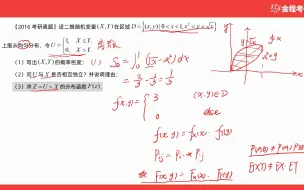 金程考
【2016考研真题】设二维随机变量(X,Y)在区域D={(x,y)|0<x<1,x²<y<√x}
上服从均匀分布，令U={1, X≤Y. 0, X>Y.
(1) 写出(X,Y)的概率密度;
(2) 问U与X是否相互独立？并说明理由;
(3) 求Z=U+X的分布函数F(z).
S_D = ∫₀¹(√x-x²)dx
= 2/3 - 1/3 = 1/3
f(x,y) = { 3 (x,y)∈D
0 else
f(x,y) = fx(x)·fy(y)
Pij = Pi·*P·j
F(x,y) = Fx(x)·Fy(y)